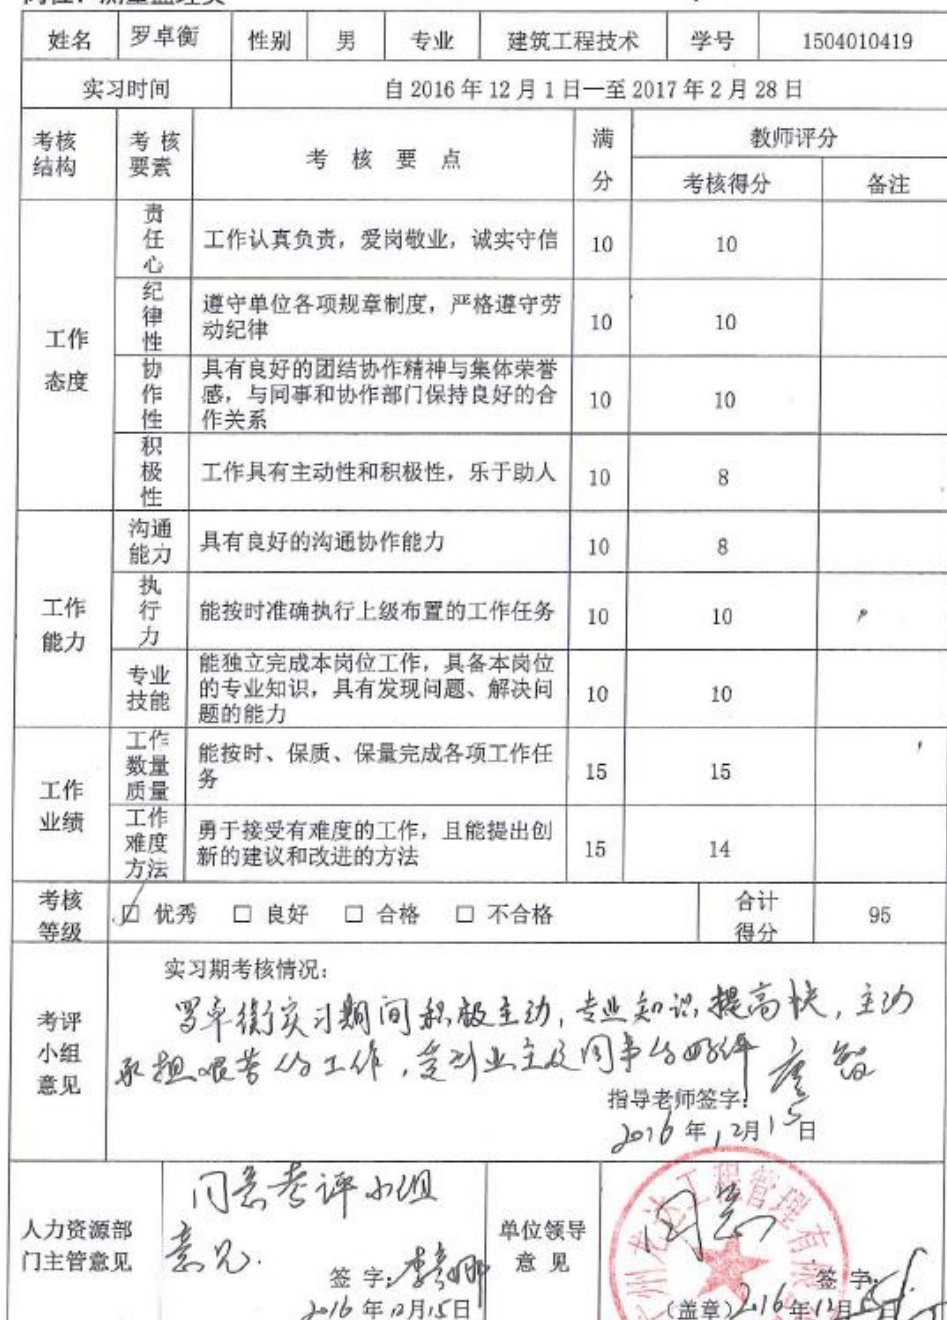 姓名 罗卓衡 性别 男 专业 建筑工程技术 学号 1504010419
实习时间 自 2016 年 12 月 1 日—至 2017 年 2 月 28 日
考核结构 考核要素 考核要点 满分 教师评分
考核得分 备注
工作态度
责任心 工作认真负责，爱岗敬业，诚实守信 10 10
纪律性 遵守单位各项规章制度，严格遵守劳动纪律 10 10
协作性 具有良好的团结协作精神与集体荣誉感，与同事和协作部门保持良好的合作关系 10 10
积极性 工作具有主动性和积极性，乐于助人 10 8
工作能力
沟通能力 具有良好的沟通协作能力 10 8
执行力 能按时准确执行上级布置的工作任务 10 10
专业技能 能独立完成本岗位工作，具备本岗位的专业知识，具有发现问题、解决问题的能力 10 10
工作业绩
工作数量质量 能按时、保质、保量完成各项工作任务 15 15
工作难度方法 勇于接受有难度的工作，且能提出创新的建议和改进的方法 15 14
考核等级 □ 优秀 □ 良好 □ 合格 □ 不合格 合计得分 95
考评小组意见
实习期考核情况：
罗卓衡实习期间积极主动，专业知识提高快，主动
承担艰苦的工作，受到业主及同事的好评
指导老师签字：
2016 年 12月 15日
人力资源部门主管意见
同意考评小组
意见.
签 字：
2016 年 12月 15日
单位领导意见
同意
工程管理有限
签 字：
（盖章）2016年12月 日